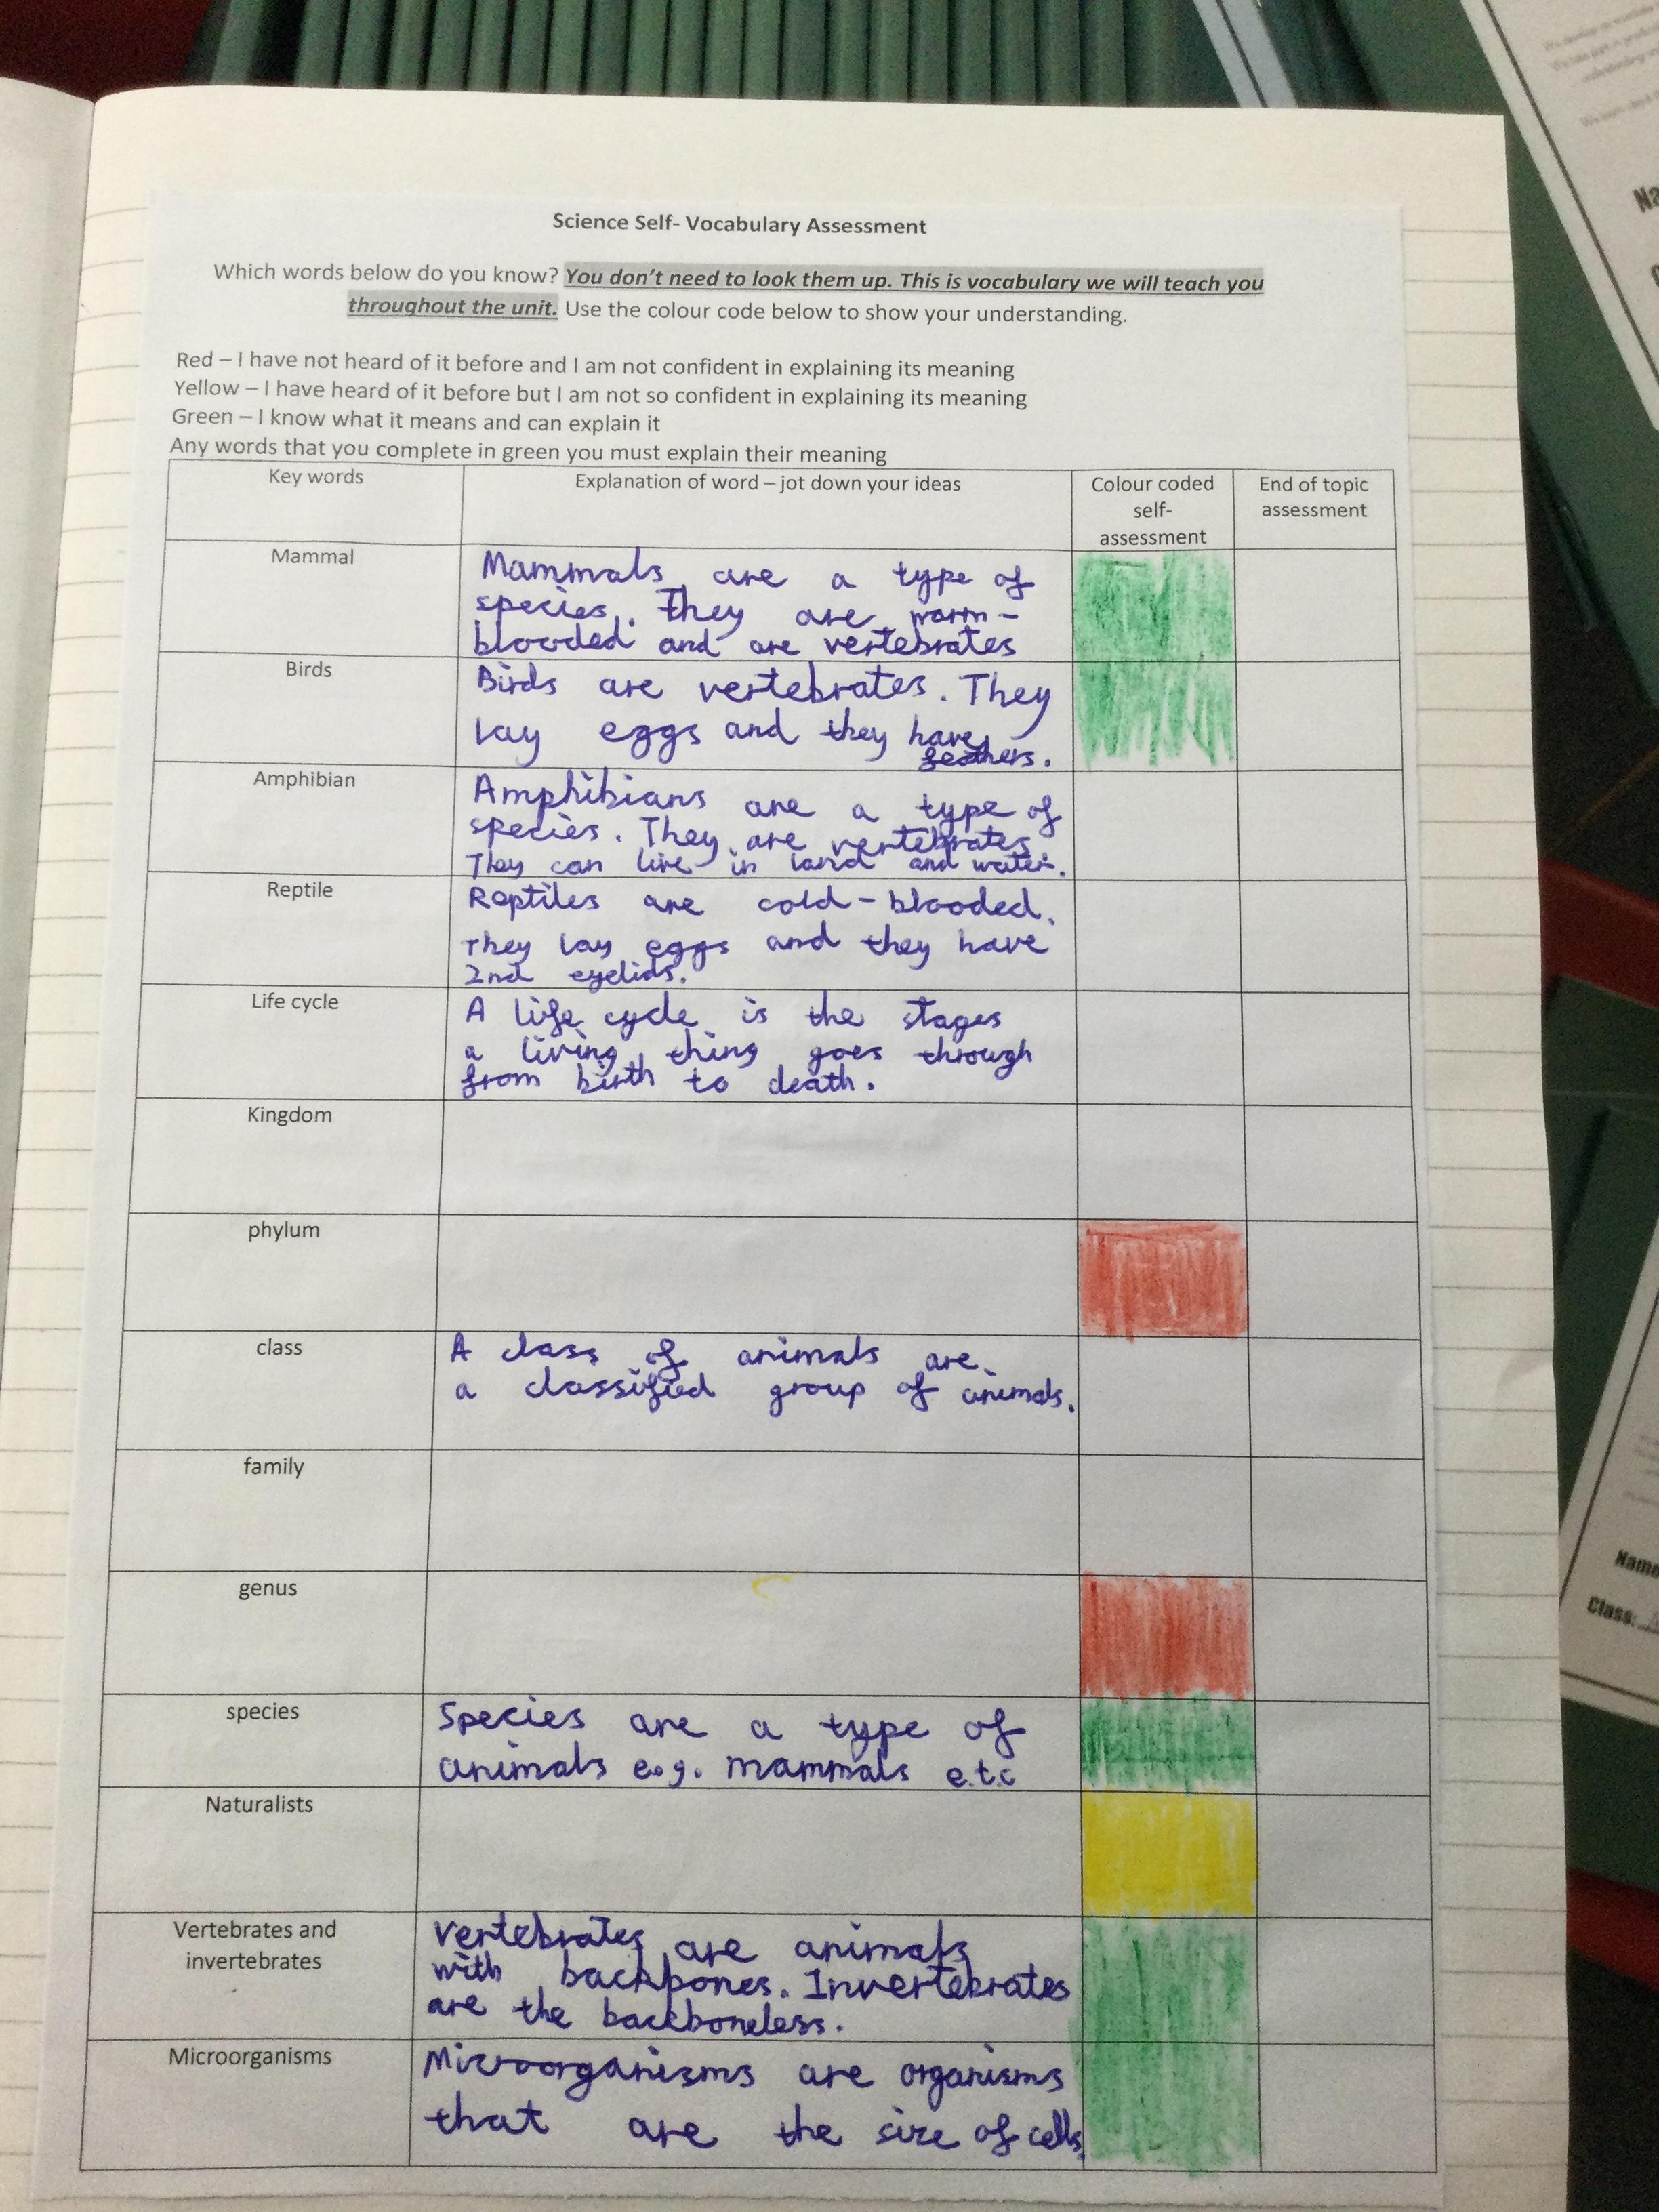 Science Self- Vocabulary Assessment
Which words below do you know? You don't need to look them up. This is vocabulary we will teach you
throughout the unit. Use the colour code below to show your understanding.
Red – I have not heard of it before and I am not confident in explaining its meaning
Yellow – I have heard of it before but I am not so confident in explaining its meaning
Green – I know what it means and can explain it
Any words that you complete in green you must explain their meaning
Key words
Explanation of word – jot down your ideas
Colour coded
self-
assessment
End of topic
assessment
Mammal
Mammals are a type of
species. They are warm-
blooded and are vertebrates
Birds
Birds are vertebrates. They
lay eggs and they have
feathers.
Amphibian
Amphibians are a type of
species. They are vertebrates
They can live in land and water.
Reptile
Reptiles are cold-blooded.
They lay eggs and they have
2nd eyelids.
Life cycle
A life cycle is the stages
a living thing goes through
from birth to death.
Kingdom
phylum
class
A class of animals are
a classified group of animals.
family
genus
species
Species are a type of
animals e.g. mammals e.t.c
Naturalists
Vertebrates and
invertebrates
Vertebrates are animals
with backbones. Invertebrates
are the backboneless.
Microorganisms
Microorganisms are organisms
that are the size of cells.
Na
Name
Class: